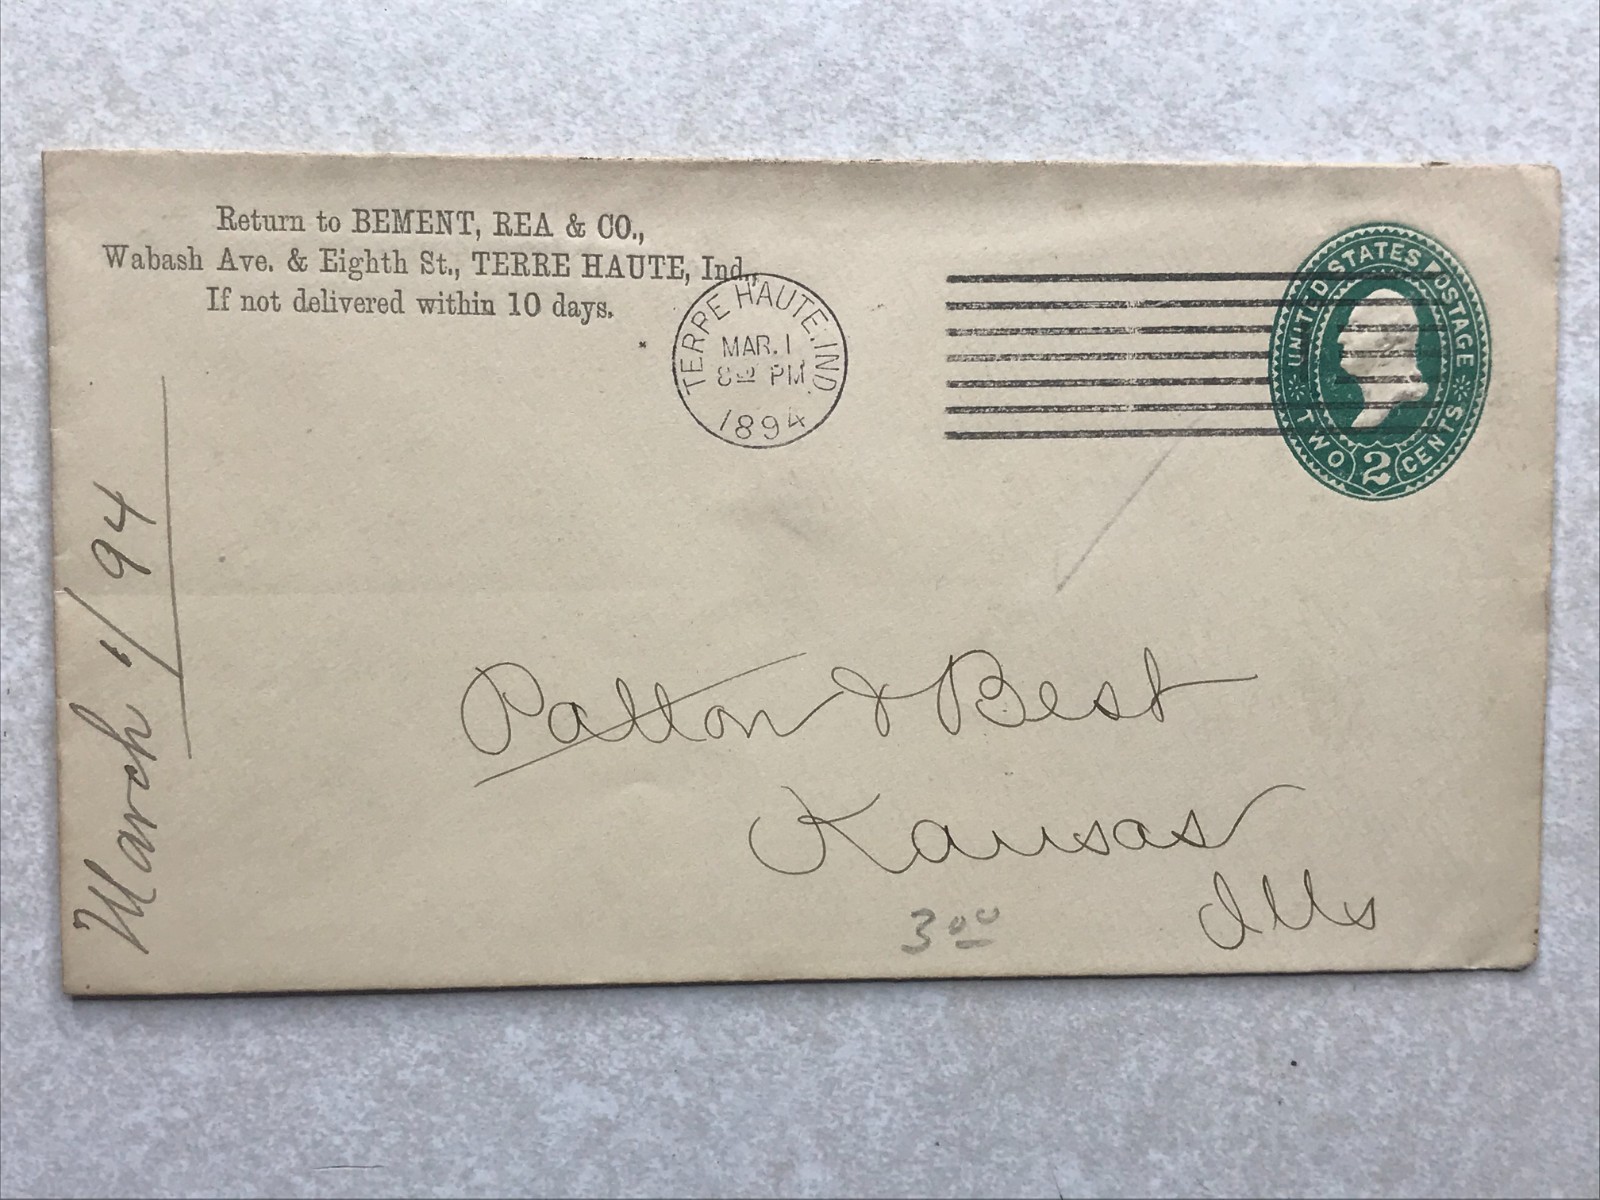 Return to BEMENT, REA & CO.,
Wabash Ave. & Eighth St., TERRE HAUTE, Ind.,
If not delivered within 10 days.
TERRE HAUTE, IND.
MAR. 1
8 PM
1894
UNITED STATES POSTAGE
TWO 2 CENTS
March 1/94
Patton & Best
Kansas
Ills
3 00